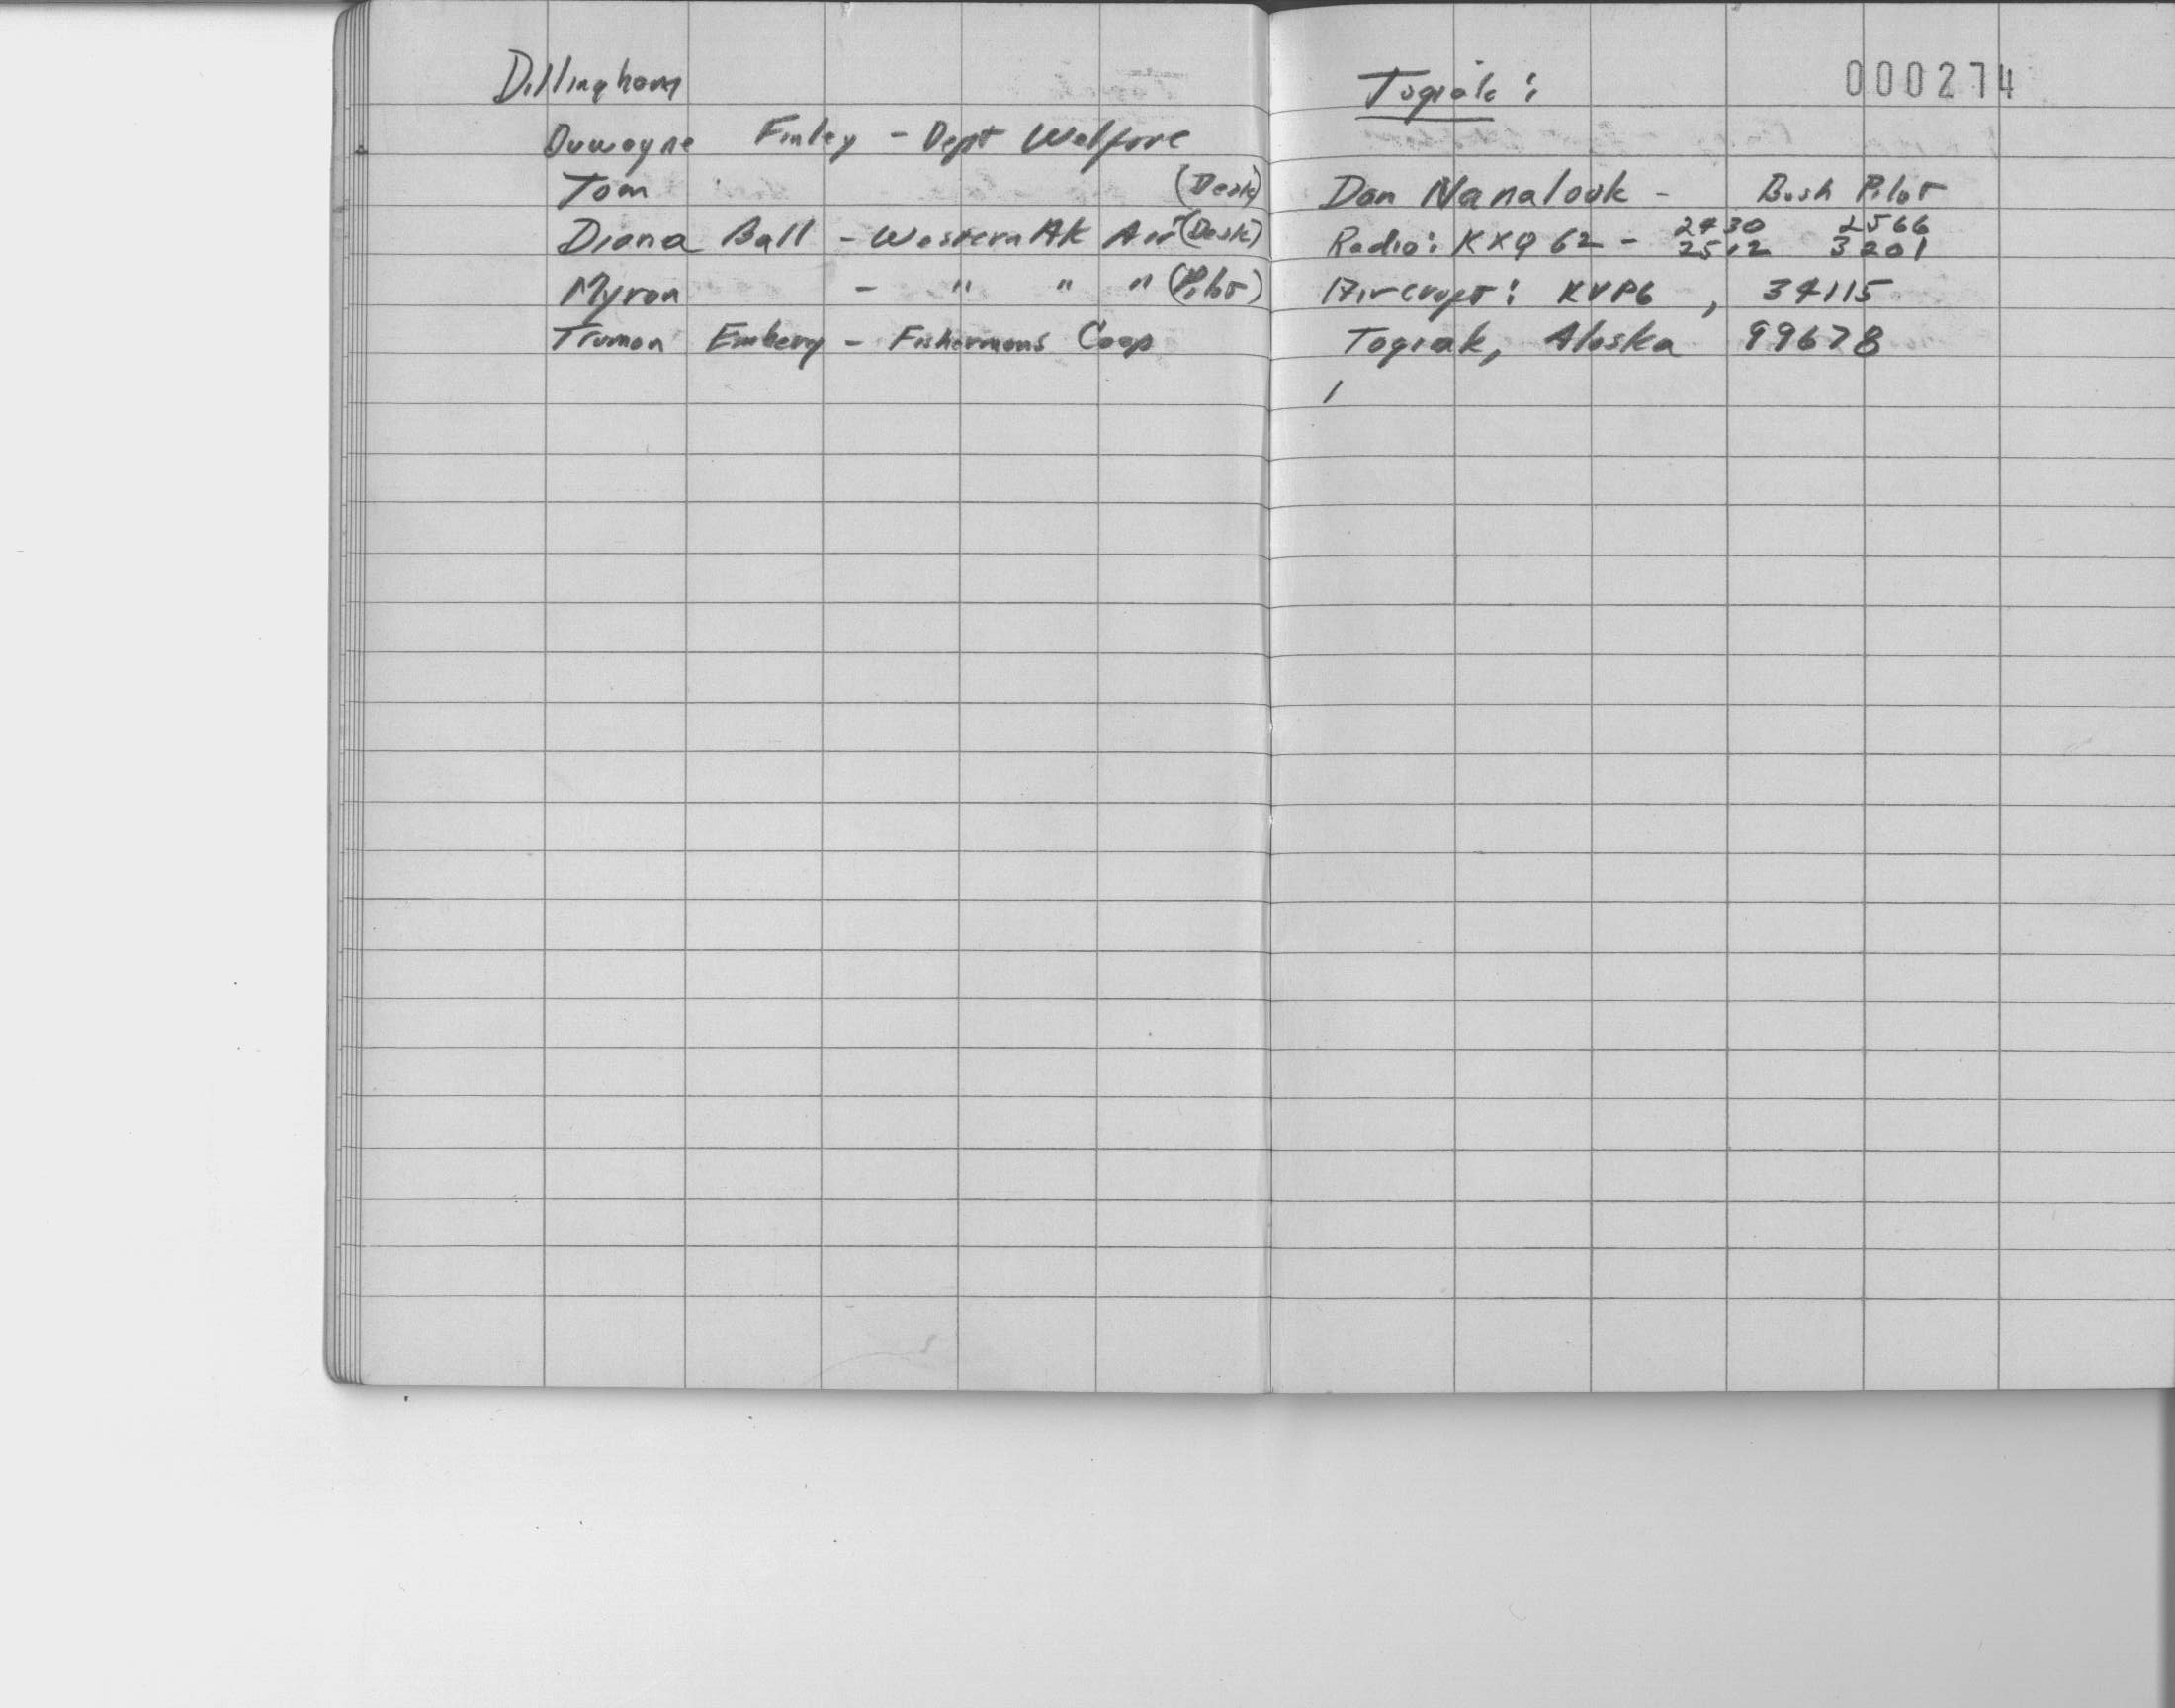 Dillingham
Duwayne Finley - Dept Welfare
Tom (Desk)
Diana Ball - Western AK Air (Desk)
Myron - " " " (Pilot)
Truman Embery - Fishermans Coop
000274
Togiak:
Dan Nanalook - Bush Pilot
2430 2566
Radio: KXQ 62 - 2512 3201
Aircraft: KVP6, 34115
Togiak, Alaska 99678